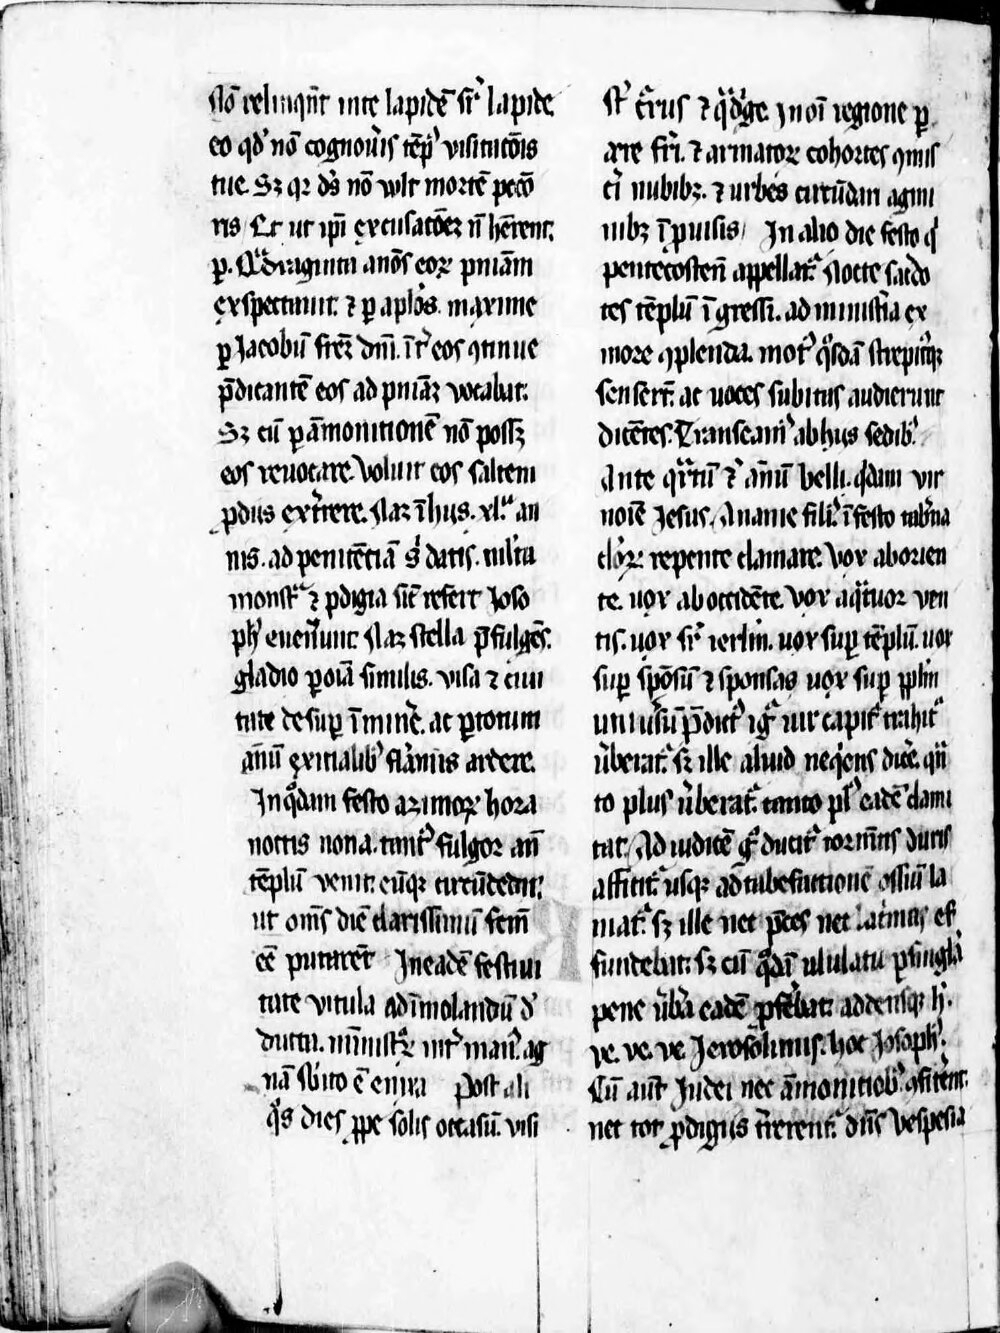 Nō relinqn̄t in te lapidē sr̄ lapidē
eo qd' nō cognoūis tēp' visitatōis
tue. Sꝫ qꝛ ds̄ nō vlt mortē pecō
ris Et ut ip̄i excusatōeꝫ n̄ hērent,
ꝑ. Qᵃdraginta anōs eoꝝ pn̄iam
exspectauit. ⁊ ꝑ aplōs. maxime
ꝑ Jacobū frēꝫ dn̄i. īt' eos ꝯtinue
p̄dicantē eos ad pn̄iaꝫ vocabat.
Sꝫ cū ꝑ āmonitionē nō possꝫ
eos reuocare. voluit eos saltem
ꝓdiis ext'rere. Naꝫ ī hus. xlᵃ. an
nis. ad penitētiā s' datis. ml'ta
monstᵃ ⁊ ꝓdigia sic̄ refert Joso
ph' euen'unt. Naꝫ stella p̄fulgēs.
gladio ꝑ oīa similis. visa ⁊ ciui
tate desuꝑ īminē'. ac ꝑ totum
ānū exitialib' flām̄is ardere.
In qᵒdam festo azimoꝝ hora
noctis nona. tant' fulgor an̄
tēplū venit. eūqꝫ circūdedit,
ut om̄s diē clarissimū fcm̄
eē putarēt In eadē festiui
tate vitula ad īmolandū d'
ducta. int' man' ag
nā sb'ito ē enixa Post ali
qᵒs dies ꝓpe solis occasū. visi
st' c̄rus ⁊ qᵃdͥge. In oī regione ꝑ
are fr̄i. ⁊ armatoꝝ cohortes ꝯmis
ti nubibꝫ. ⁊ urbes circūdari agmi
nibꝫ īpuisis In alio die festo q'
pentecosten̄ appellat'. Nocte sacdo
tes tēplū īgressi. ad minist'ia ex
more ꝯplenda. mot' qᵒsdā strepitꝰqꝫ
senser̄t. ac uoces subitas audierunt
dicētes. Transeam' ab hus sedib'.
Ante qᵃrtū ē' ānū belli. qͥdam vir
noīe Jesus. Ananie fili' ī festo tab'na
cl'oꝝ. repente clamare. Vox aborien
te. uox ab occidēte. vox aqᵃtuor ven
tis. uox sr' ierlm̄. uox suꝑ tēplū. uox
suꝑ spōsū ⁊ sponsas uox suꝑ pplm̄
uniu'sū p̄dict' igͥ uir capit' trahit'
u'berat'. sꝫ ille aliud neqͥens dic̄e. qn̄
to plus u'berat'. tanto pl' eadē clami
tat. Ad iudicē gͦ ducit' torm̄tis duris
afficit'. usqꝫ ad tabefactionē ossiū la
niat'. sꝫ ille nec p̄ces nec lac'imas ef
fundebat. sꝫ cū qᵒdā ululatu ꝑ singl'a
pene u'b'a eadē ꝓferebat. addensqꝫ h'.
ve. ve. ve Jerosolimis. hoc Josoph'.
Cū aūt Judei nec āmonitiōib' ꝯu'tērent.
nec tot ꝓdigiis t'rerent'. dn̄s Vespesia